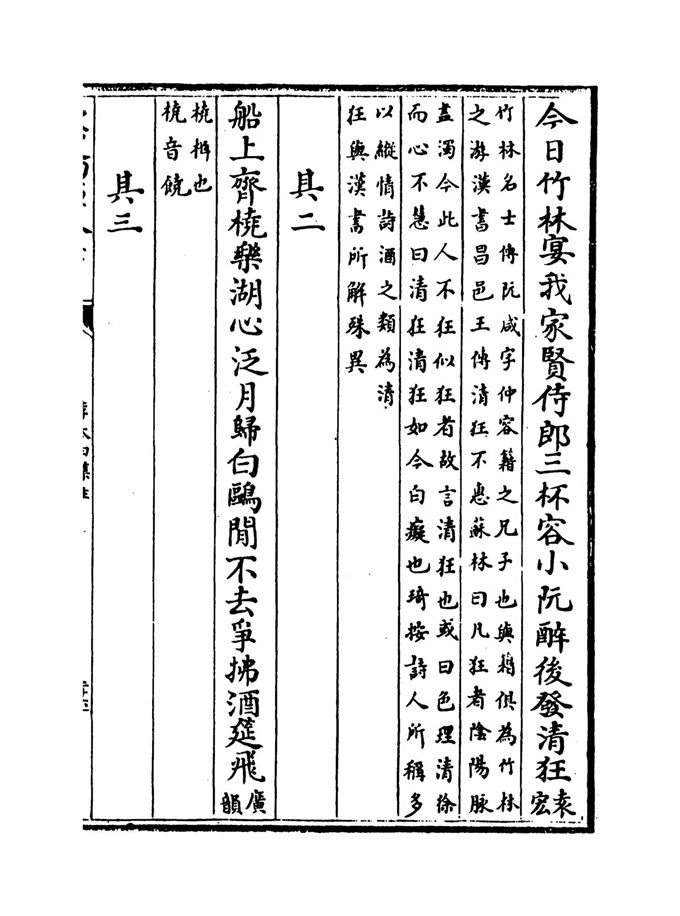 今日竹林宴我家賢侍郎三杯容小阮醉後發清狂袁宏
竹林名士傳阮咸字仲容籍之兄子也與籍俱為竹林
之游漢書昌邑王傳清狂不惠蘇林曰凡狂者陰陽脉
盡濁今此人不狂似狂者故言清狂也或曰色理清徐
而心不慧曰清狂清狂如今白癡也琦按詩人所稱多
以縱情詩酒之類為清
狂與漢書所解殊異
其二
船上齊橈樂湖心泛月歸白鷗閒不去爭拂酒筵飛廣韻
橈楫也
橈音饒
其三
李太白集注